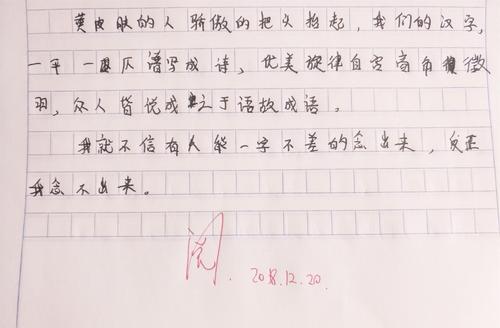 黄皮肤的人骄傲的把头抬起，我们的汉字，
一平一仄谱写成诗，优美旋律自宫商角徵
羽，众人皆说成之于语故成语。
我就不信有人能一字不差的念出来，反正
我念不出来。
阅. 2018.12.20.